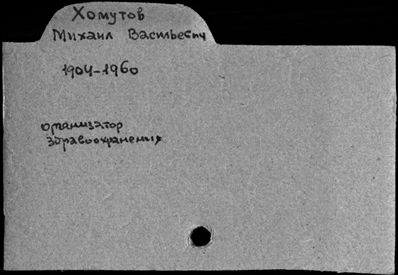 Хомутов
Михаил Васильевич
1904-1960
организатор
здравоохранения